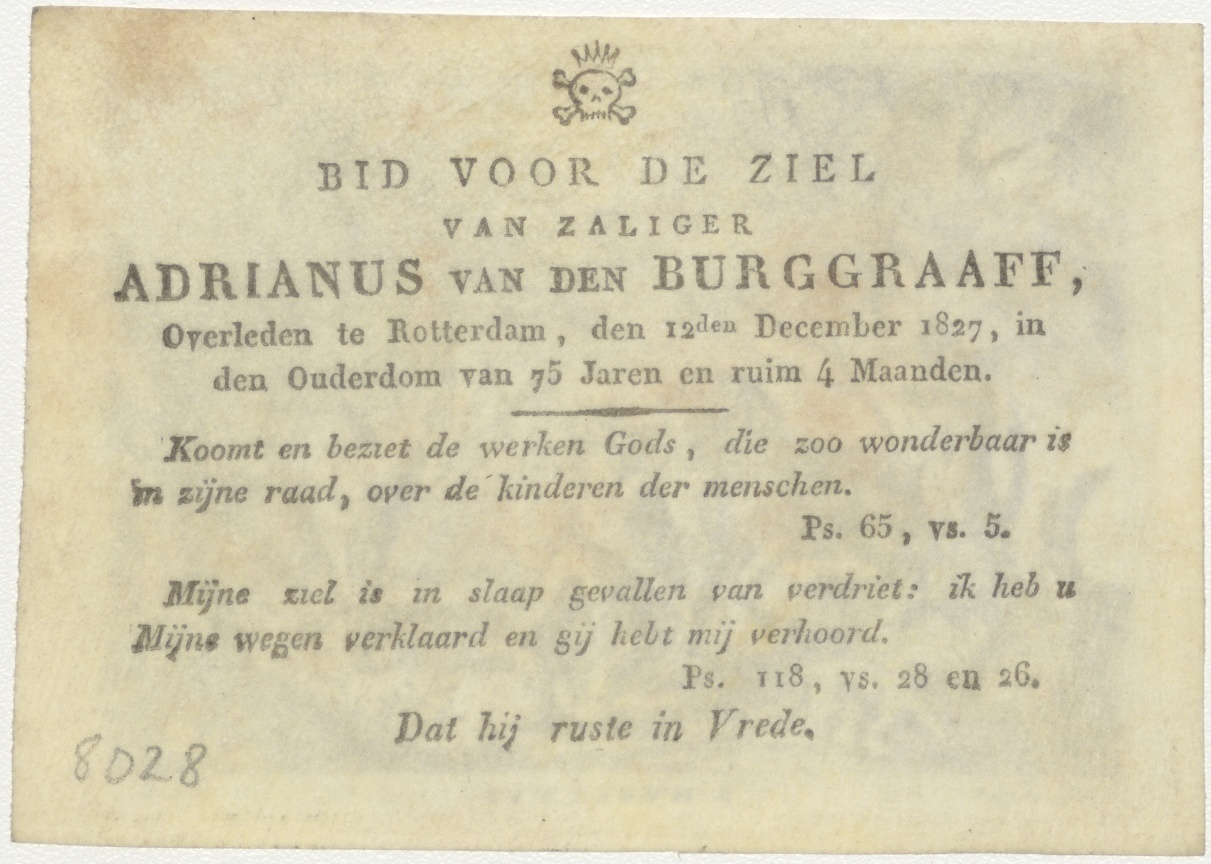 BID VOOR DE ZIEL
VAN ZALIGER
ADRIANUS VAN DEN BURGGRAAFF,
Overleden te Rotterdam, den 12den December 1827, in
den Ouderdom van 75 Jaren en ruim 4 Maanden.
Koomt en beziet de werken Gods, die zoo wonderbaar is
in zijne raad, over de kinderen der menschen.
Ps. 65, vs. 5.
Mijne ziel is in slaap gevallen van verdriet: ik heb u
Mijne wegen verklaard en gij hebt mij verhoord.
Ps. 118, vs. 28 en 26.
Dat hij ruste in Vrede.
8028